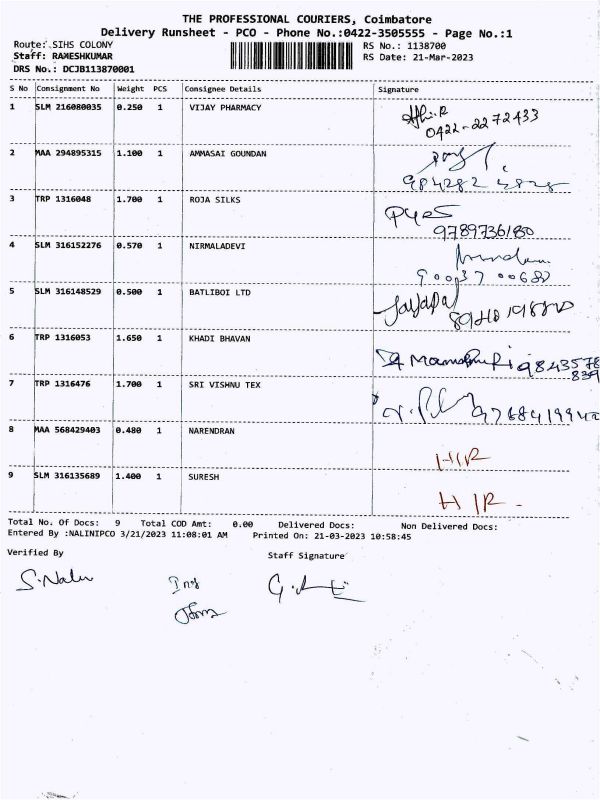 THE PROFESSIONAL COURIERS, Coimbatore
Delivery Runsheet - PCO - Phone No.:0422-3505555 - Page No.:1
Route: SIHS COLONY RS No.: 1138700
Staff: RAMESHKUMAR RS Date: 21-Mar-2023
DRS No.: DCJB113870001
S No Consignment No Weight PCS Consignee Details Signature
1 SLM 216080035 0.250 1 VIJAY PHARMACY
0422-2272433
2 MAA 294895315 1.100 1 AMMASAI GOUNDAN
3 TRP 1316048 1.700 1 ROJA SILKS
9789736180
4 SLM 316152276 0.570 1 NIRMALADEVI
5 SLM 316148529 0.500 1 BATLIBOI LTD
6 TRP 1316053 1.650 1 KHADI BHAVAN
9843578
839
7 TRP 1316476 1.700 1 SRI VISHNU TEX
8 MAA 568429403 0.480 1 NARENDRAN
HIR
9 SLM 316135689 1.400 1 SURESH
HIR -
Total No. Of Docs: 9 Total COD Amt: 0.00 Delivered Docs: Non Delivered Docs:
Entered By :NALINIPCO 3/21/2023 11:08:01 AM Printed On: 21-03-2023 10:58:45
Verified By Staff Signature